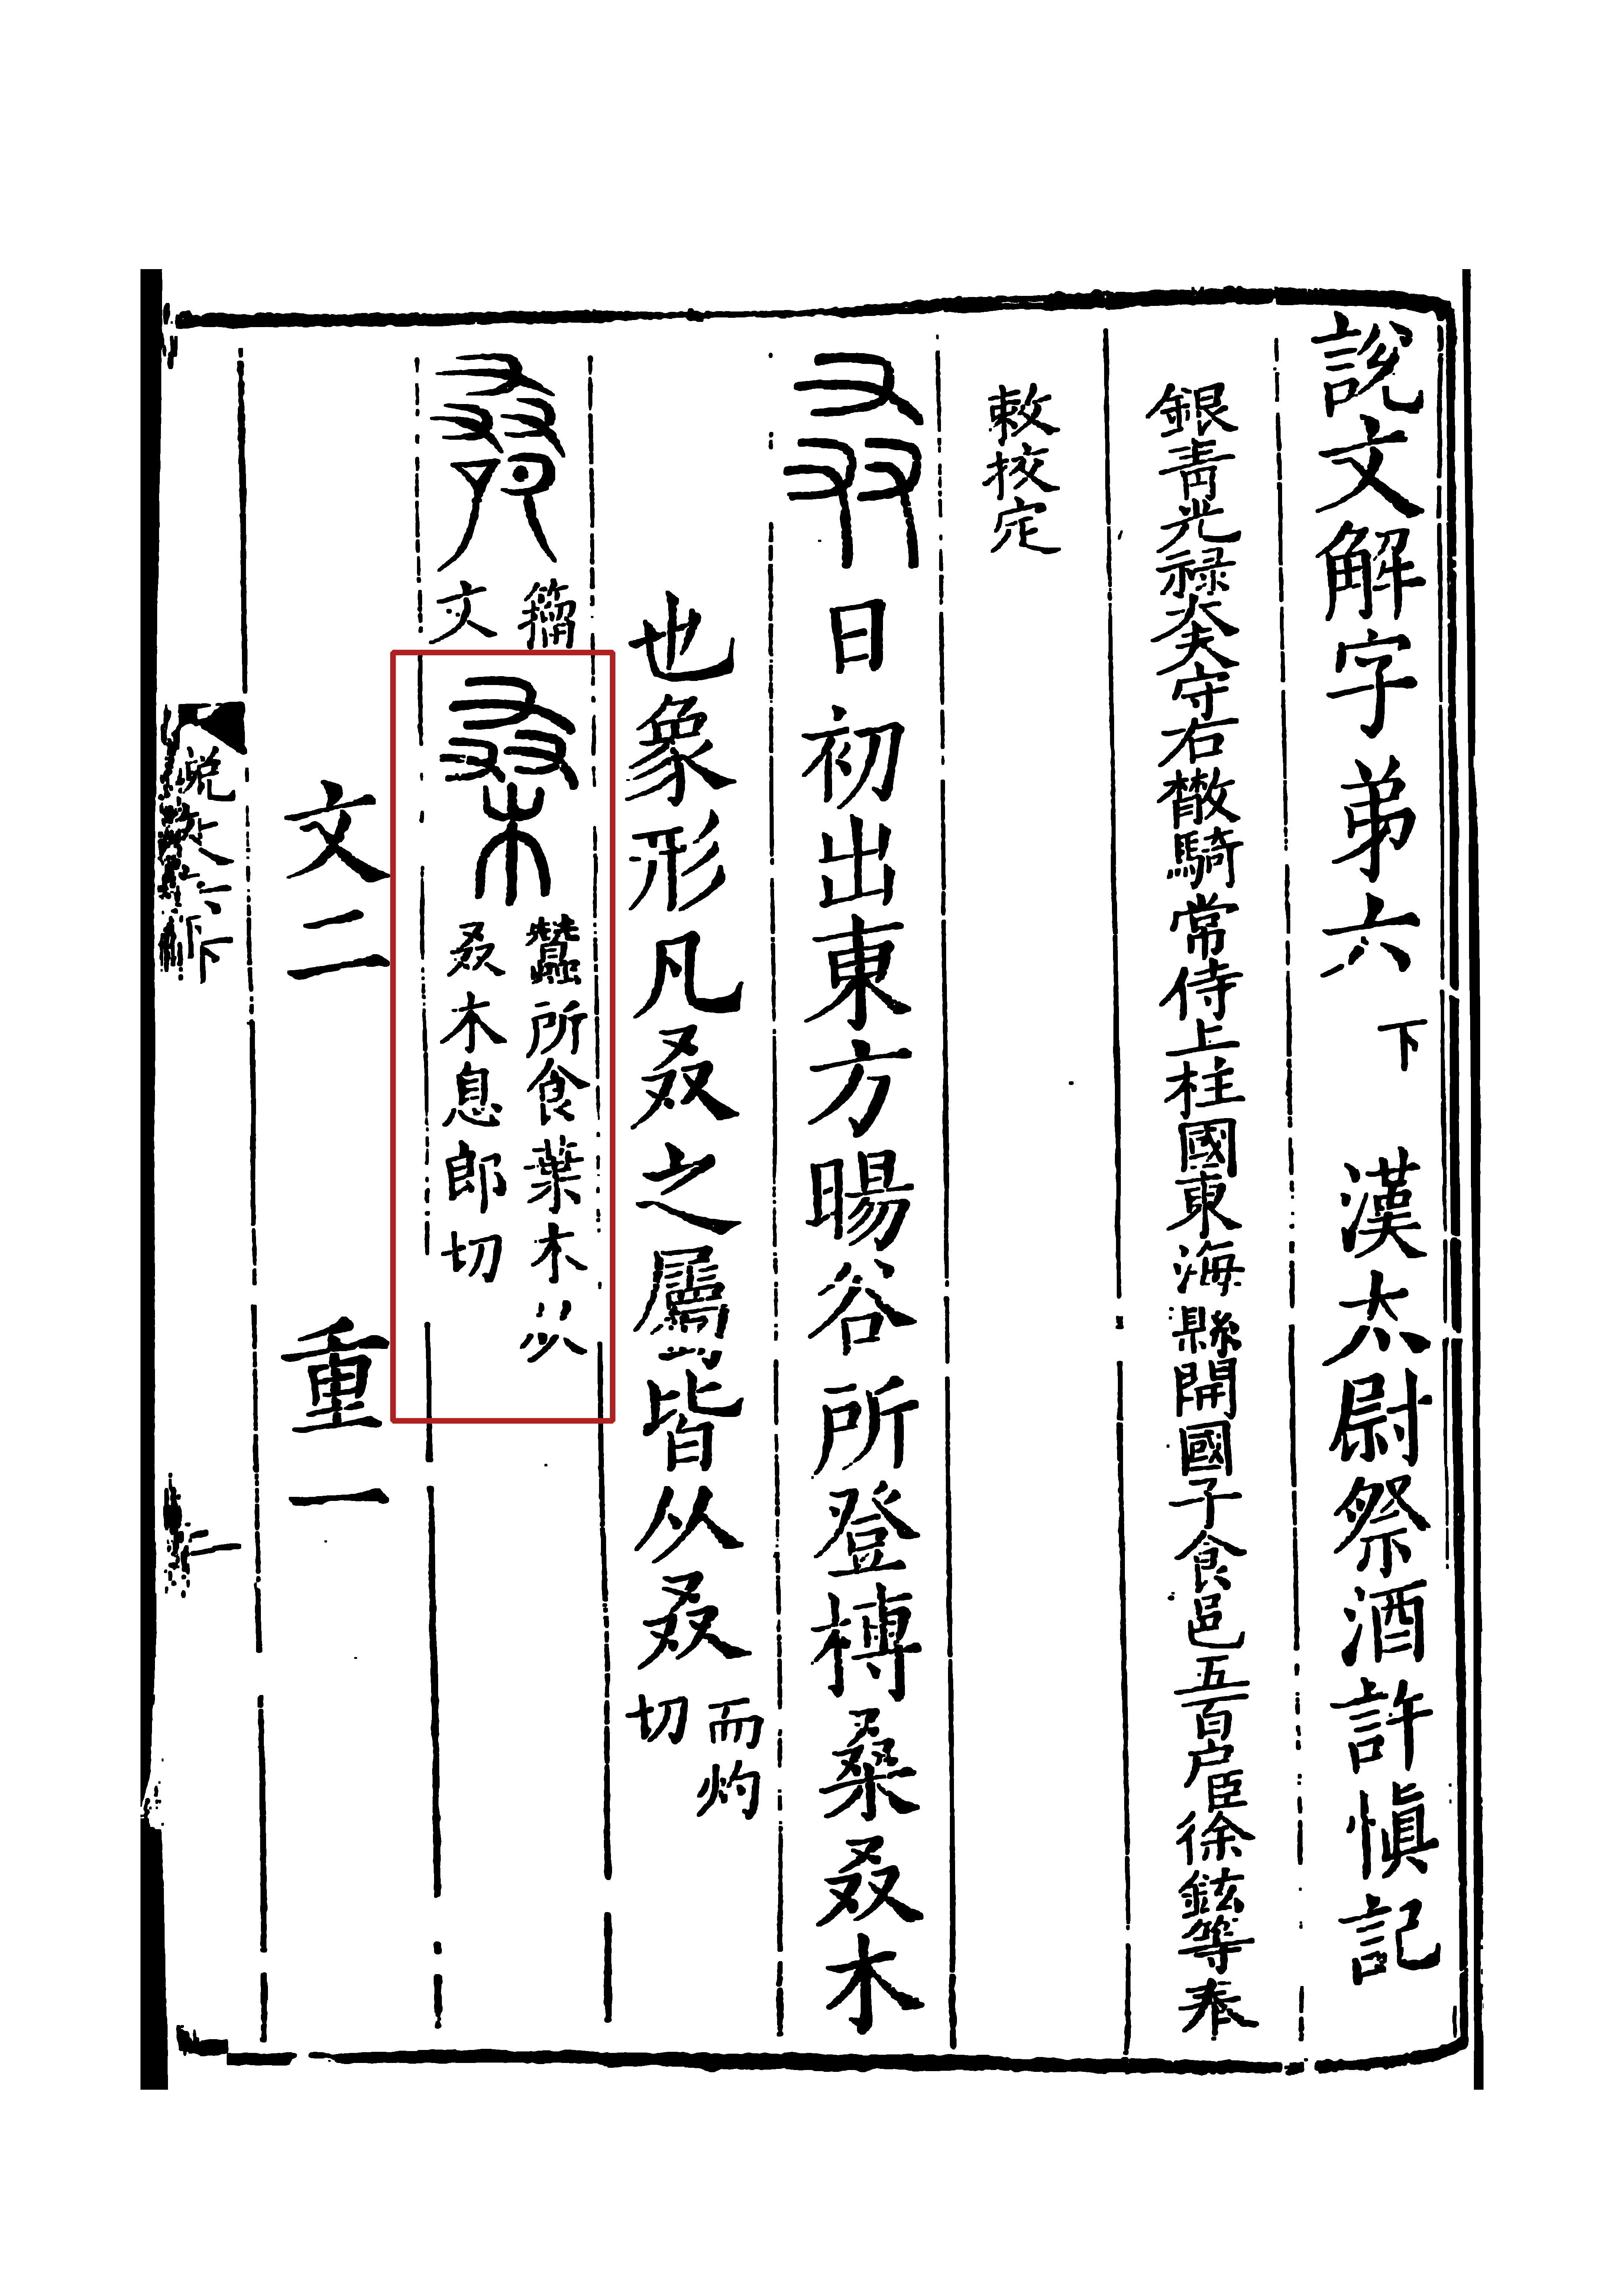 說文解字弟六 下 漢太尉祭酒許慎記
銀青光祿大夫守右散騎常侍上柱國東海縣開國子食邑五百戶臣徐鉉等奉
敕挍定
叒 日初出東方暘谷所登榑桑叒木
也象形凡叒之屬皆从叒而灼切
籒文 桑 蠶所食葉木从叒木息郎切
文二 重一
說文六下
二